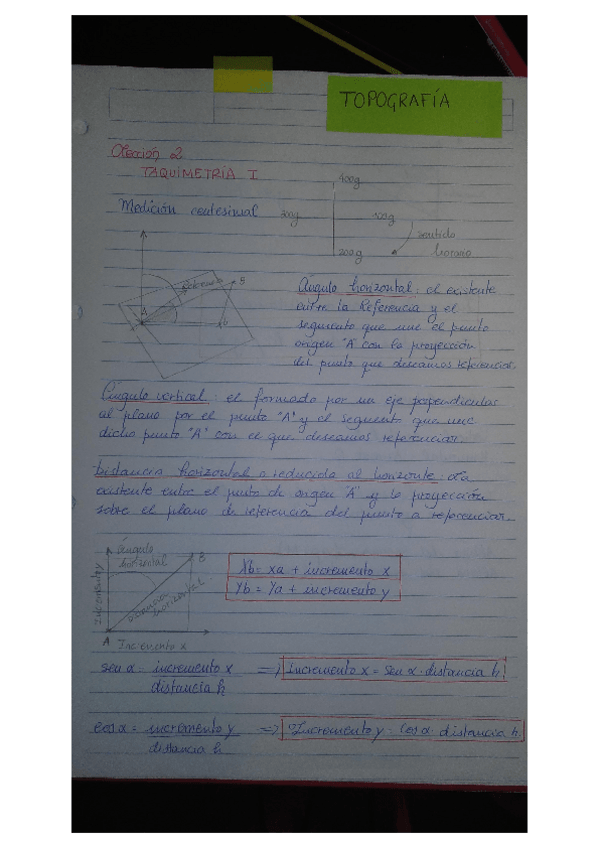 TOPOGRAFÍA
Lección 2
TAQUIMETRÍA I
400g
Medición centesimal
300g
100g
sentido
200g
horario
B
A
Ángulo horizontal: el existente
entre la Referencia y el
segmento que une el punto
origen "A" con la proyección
del punto que deseamos referenciar.
Ángulo vertical: el formado por un eje perpendicular
al plano por el punto "A" y el segmento que une
dicho punto "A" con el que deseamos referenciar.
Distancia horizontal o reducida al horizonte: la
existente entre el punto de origen "A" y la proyección
sobre el plano de referencia del punto a referenciar.
Ángulo
horizontal
B
Xb = xa + incremento x
Yb = Ya + incremento y
Incremento y
Distancia
horizontal
A Incremento x
sen α = incremento x => Incremento x = sen α · distancia h
distancia h
cos α = incremento y => Incremento y = cos α · distancia h
distancia h